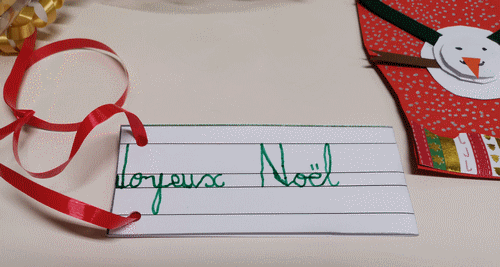 Joyeux Noël